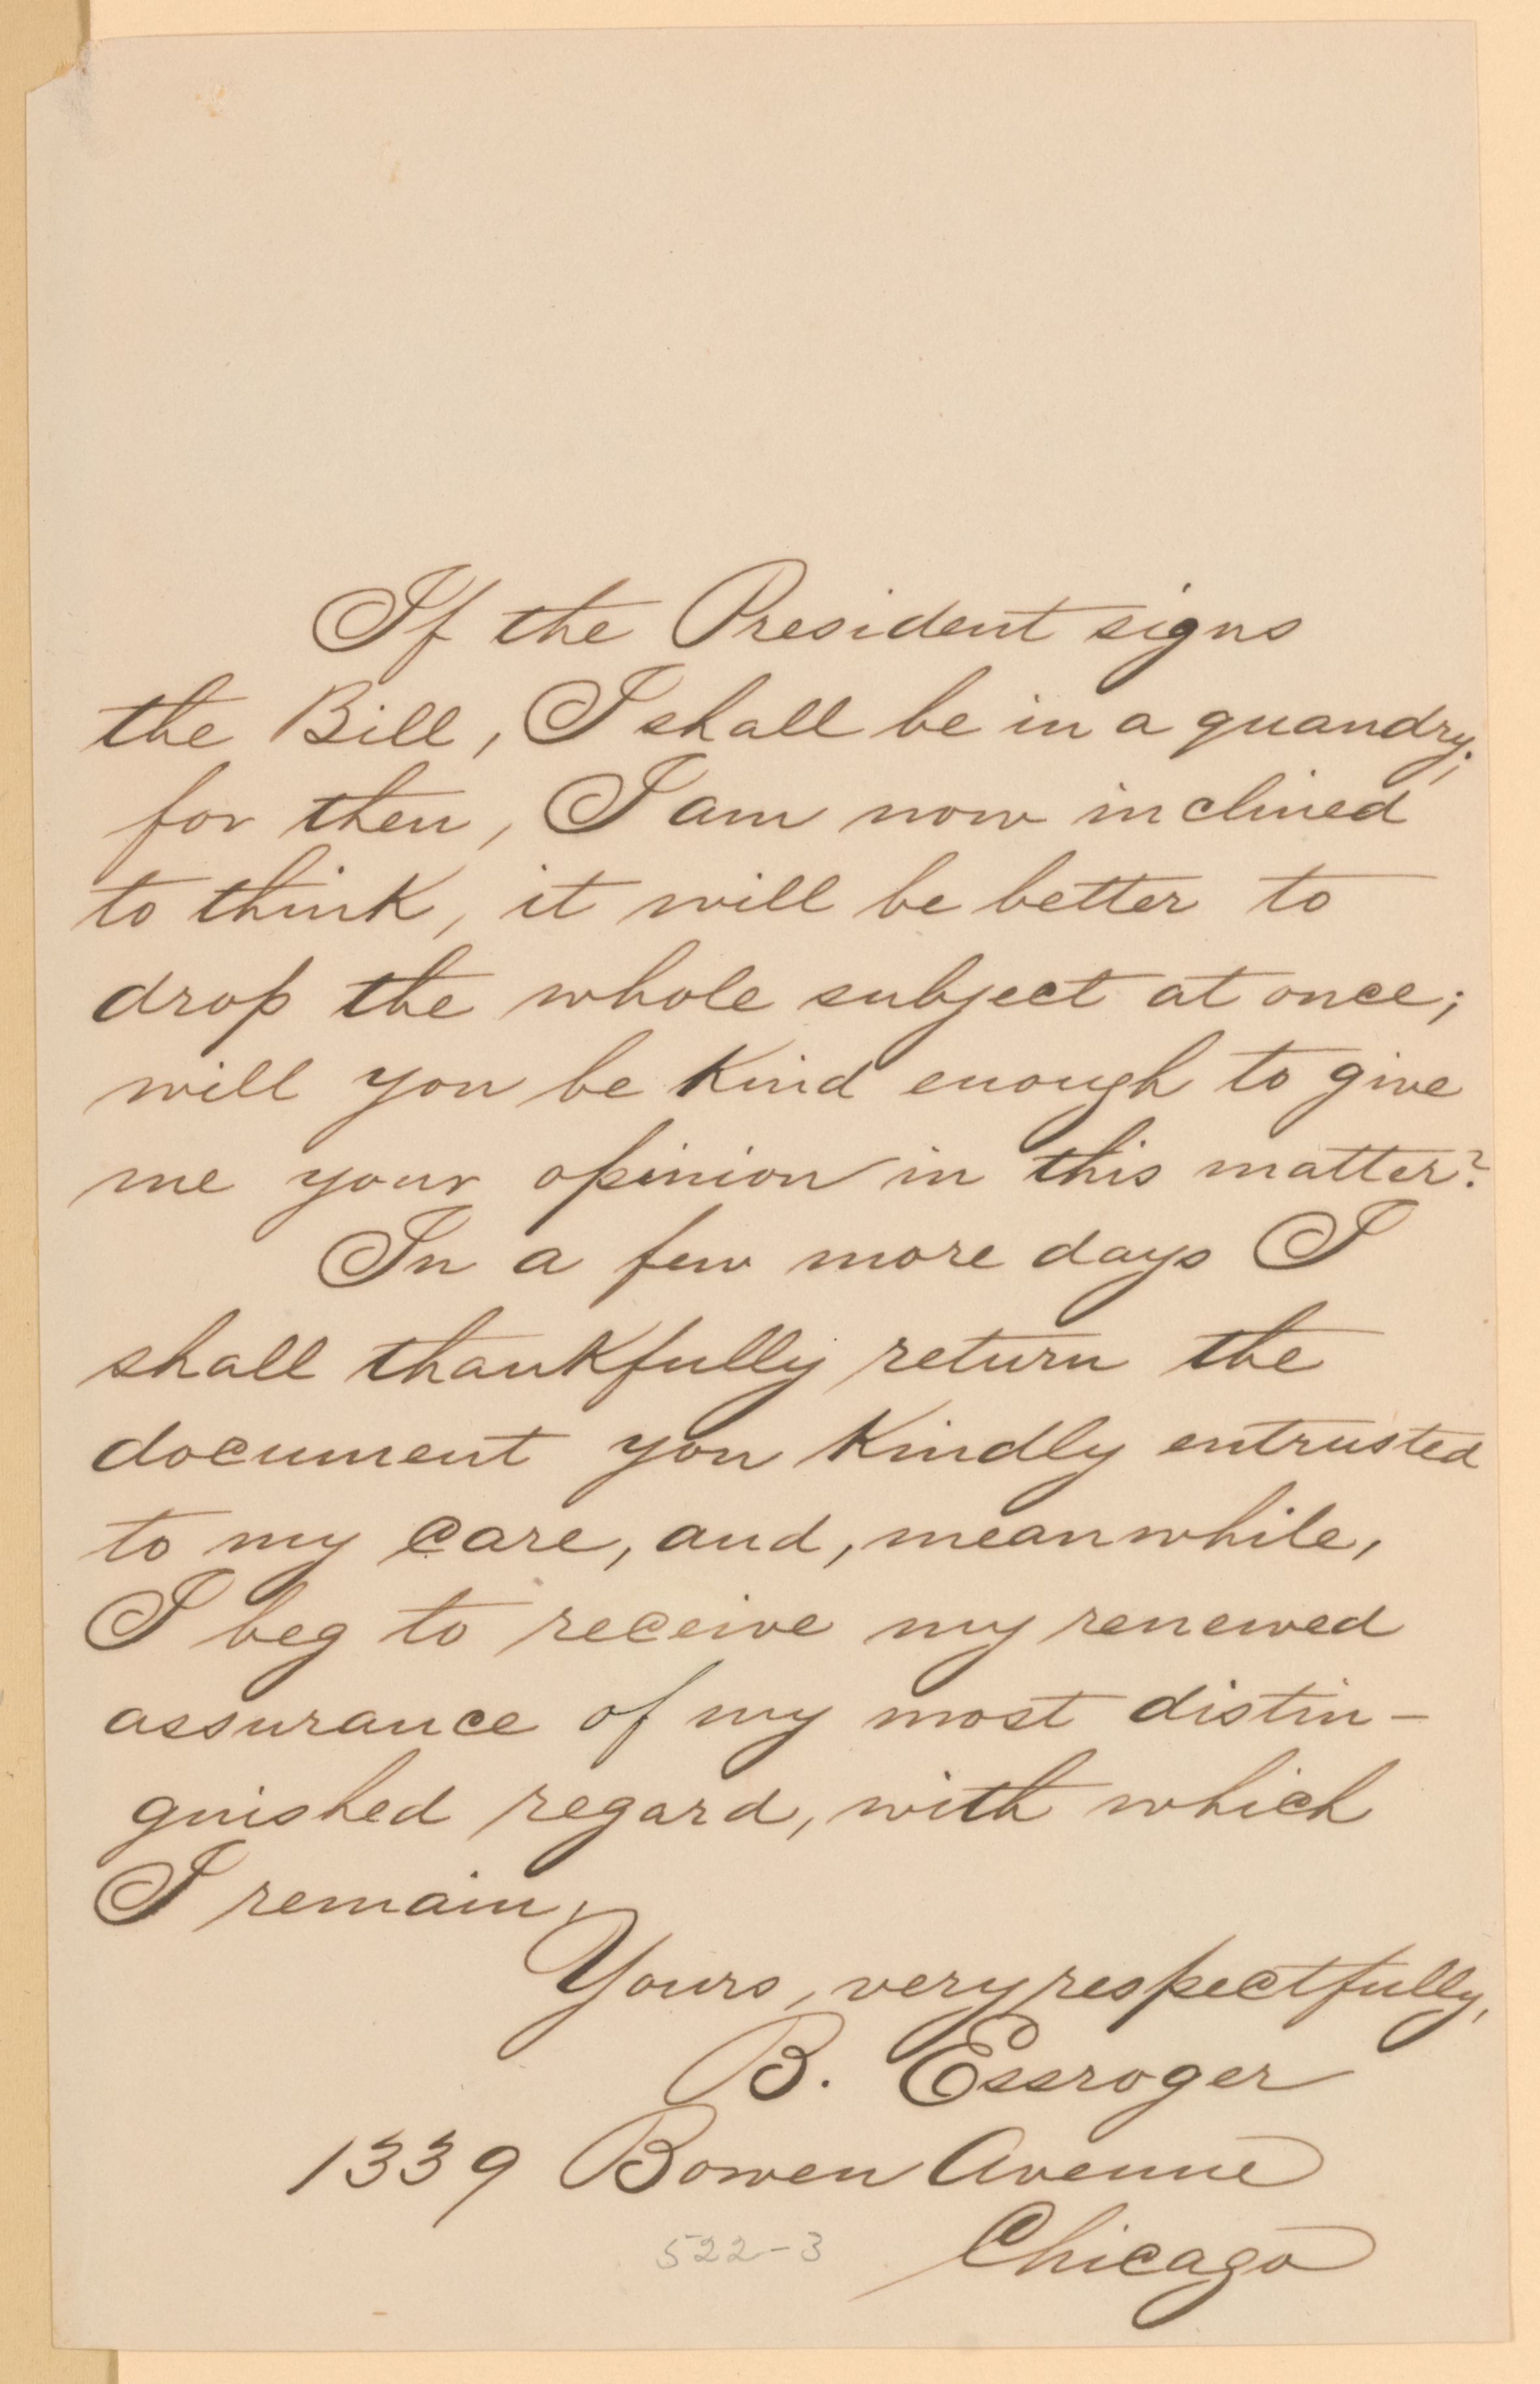 If the President signs
the Bill, I shall be in a quandry;
for then, I am now inclined
to think, it will be better to
drop the whole subject at once;
will you be kind enough to give
me your opinion in this matter?
In a few more days I
shall thankfully return the
document you kindly entrusted
to my care, and, meanwhile,
I beg to receive my renewed
assurance of my most distin-
guished regard, with which
I remain,
Yours, very respectfully,
B. Essroger
1339 Bowen Avenue
Chicago
522-3